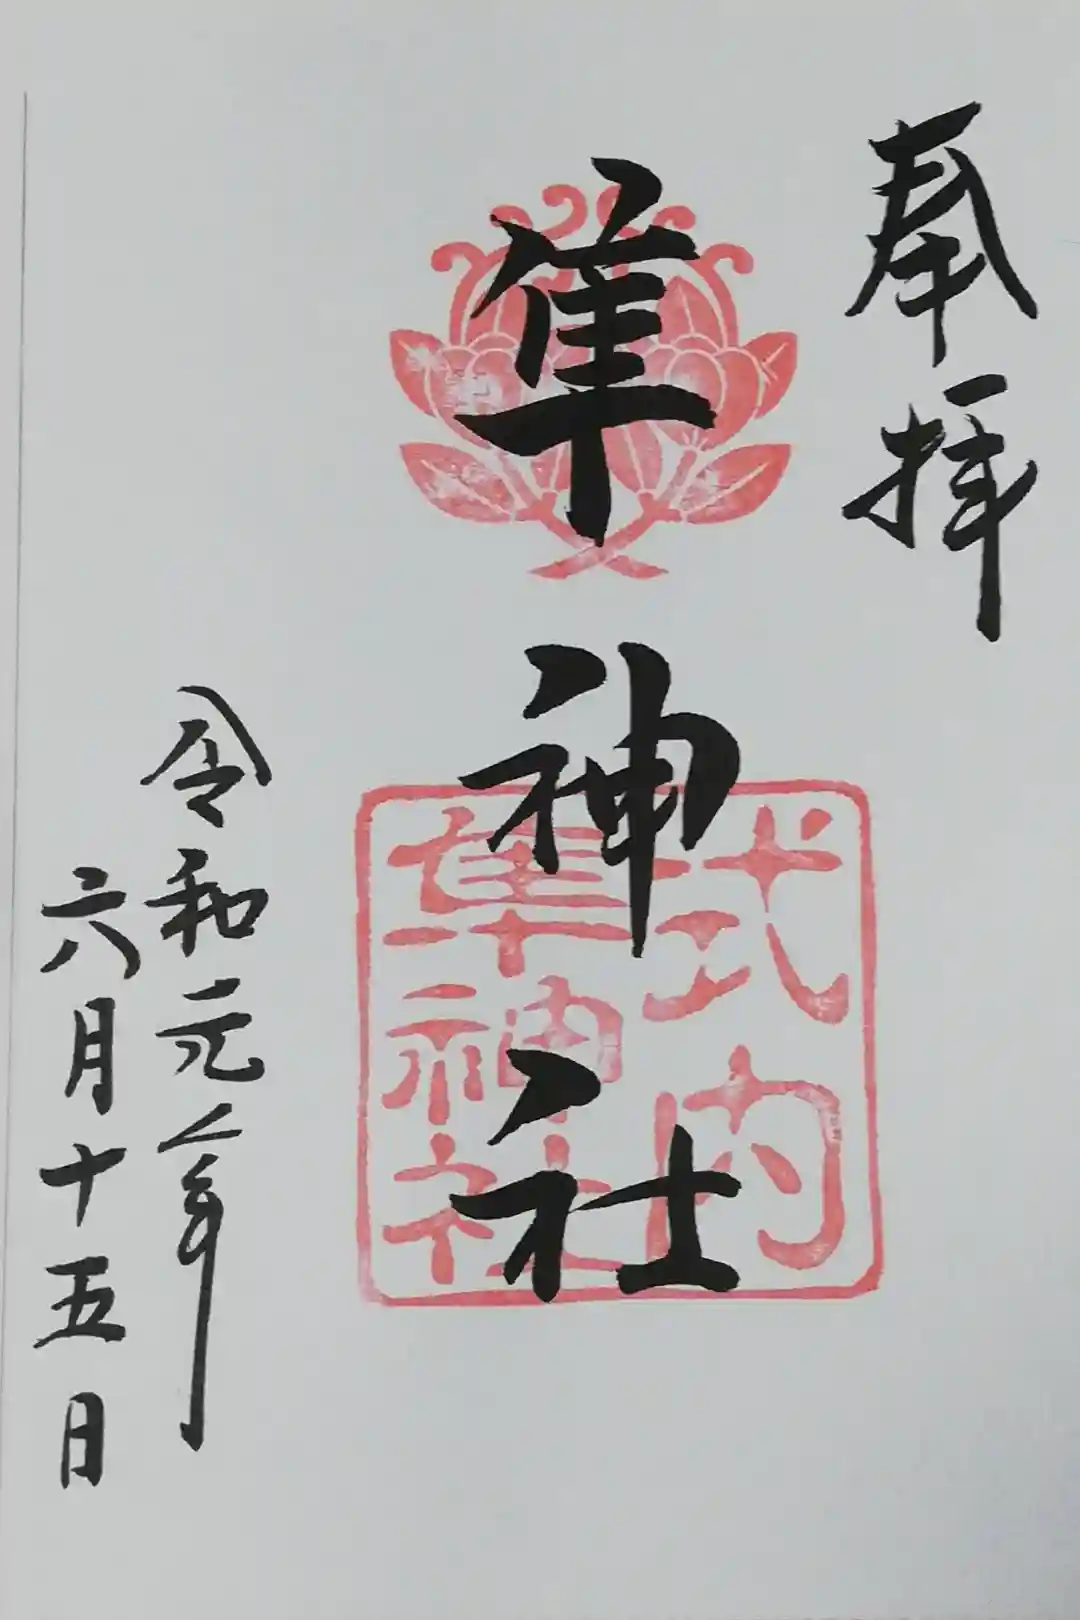 奉拝
隼神社
式内
隼神社
令和元年
六月十五日